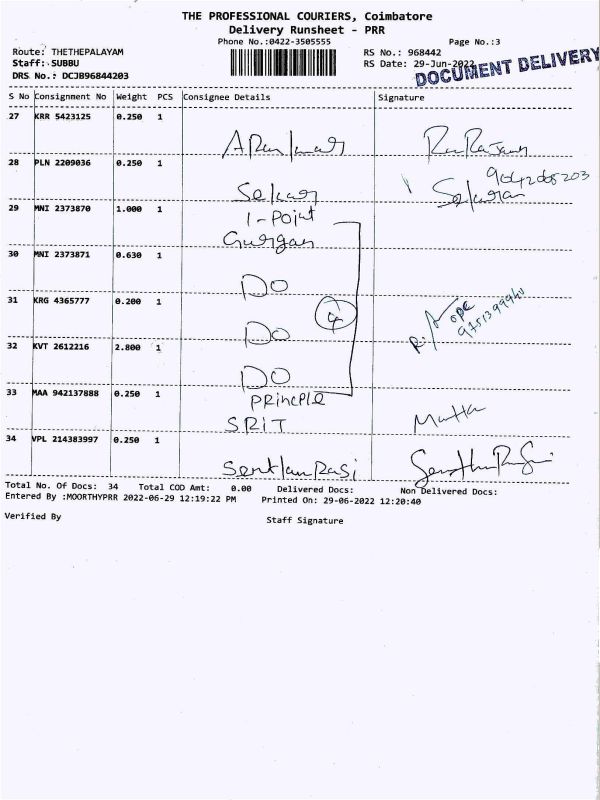 THE PROFESSIONAL COURIERS, Coimbatore
Delivery Runsheet - PRR
Phone No.:0422-3505555
Page No.:3
Route: THETHEPALAYAM
RS No.: 968442
Staff: SUBBU
RS Date: 29-Jun-2022
DRS No.: DCJB96844203
DOCUMENT DELIVERY
S No Consignment No Weight PCS Consignee Details Signature
27 KRR 5423125 0.250 1
28 PLN 2209036 0.250 1
Sekar
29 MNI 2373870 1.000 1
1-Point
Gurgan
30 MNI 2373871 0.630 1
DO
31 KRG 4365777 0.200 1
4
DO
32 KVT 2612216 2.800 1
DO
33 MAA 942137888 0.250 1
PRinciple
SRIT
34 VPL 214383997 0.250 1
Total No. Of Docs: 34 Total COD Amt: 0.00 Delivered Docs: Non Delivered Docs:
Entered By :MOORTHYPRR 2022-06-29 12:19:22 PM Printed On: 29-06-2022 12:20:40
Verified By
Staff Signature